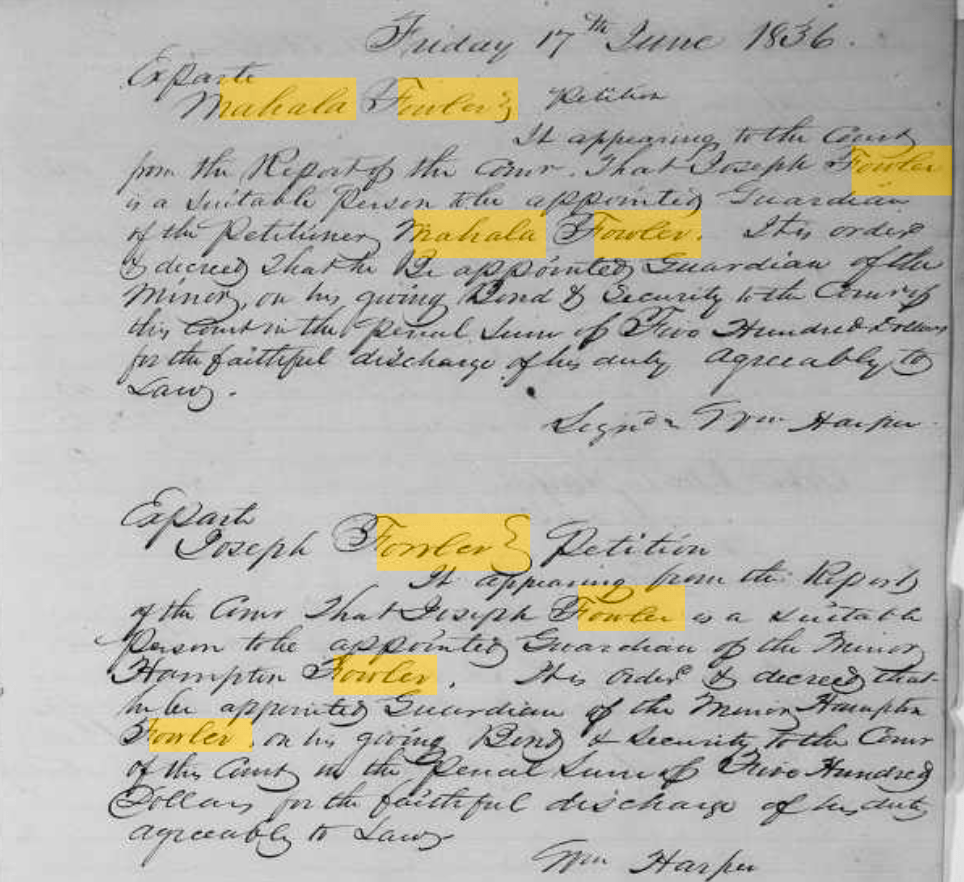 Friday 17th June 1836.
Exparte
Mahala Fowler } Petition
It appearing to the Court
from the Report of the Comr. That Joseph Fowler
is a Suitable Person to be appointed Guardian
of the Petitioner Mahala Fowler. It is order
& decreed That he Be appointed Guardian of the
Minor, on his giving Bond & Security to the Comr of
this Court in the Penal Sum of Five Hundred Dollars
for the faithful discharge of his duty agreeably to
Law.
Signed Wm Harper
Exparte
Joseph Fowler } Petition
It appearing from the Report
of the Comr That Joseph Fowler is a Suitable
Person to be appointed Guardian of the Minor
Hampton Fowler. It is Orderd & decreed that
he be appointed Guardian of the Minor Hampton
Fowler, on his giving Bond & Security to the Comr
of this Court in the Penal Sum of Five Hundred
Dollars for the faithful discharge of his duty
agreeably to Law
Wm Harper